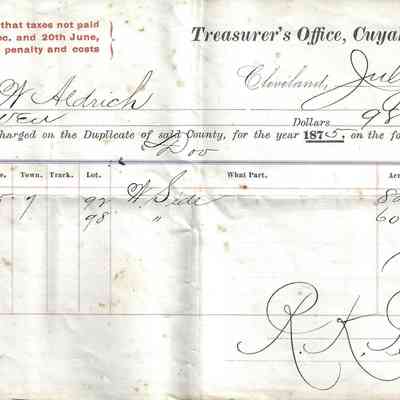 that taxes not paid
ec. and 20th June,
penalty and costs
Treasurer's Office, Cuya
Cleveland, Jul
W Aldrich
Dollars 98
charged on the Duplicate of said County, for the year 1875, on the fo
Dov
Town. Track. Lot. What Part. Acr
7 92 W Side
98 " 60
R. K.